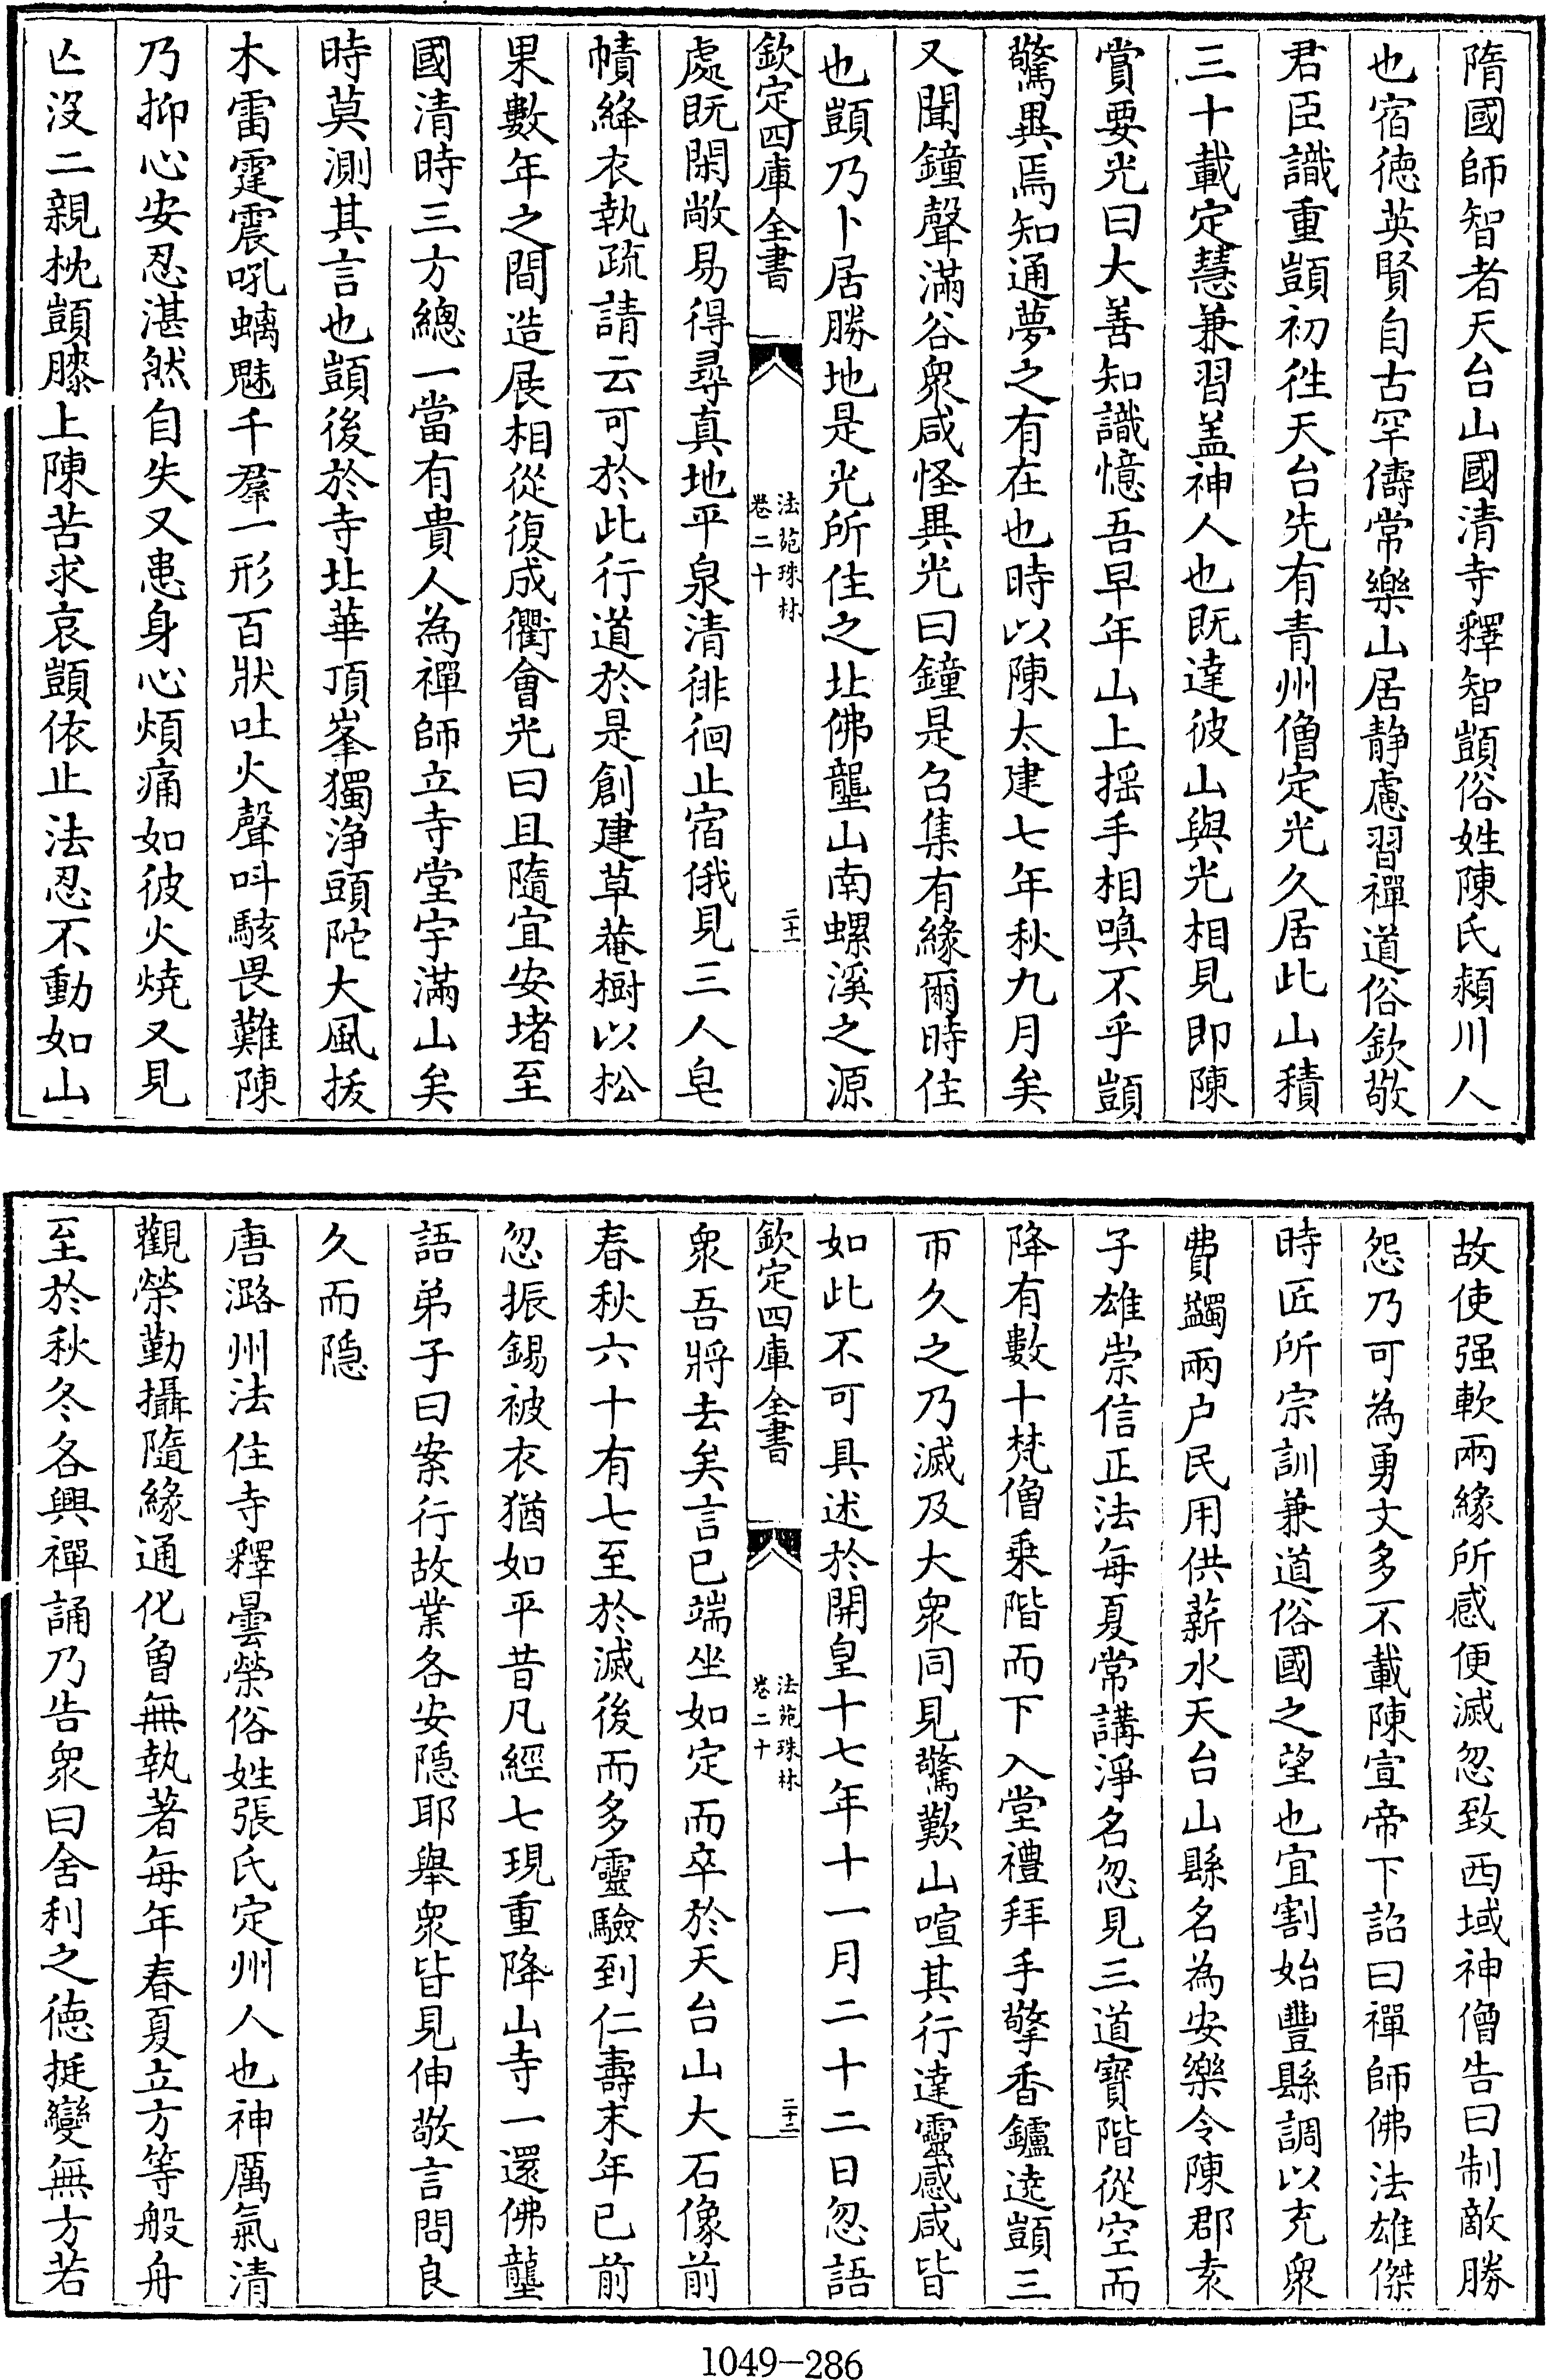 隋國師智者天台山國清寺釋智顗俗姓陳氏潁川人
也宿徳英賢自古罕儔常樂山居静慮習禪道俗欽敬
君臣識重顗初徃天台先有青州僧定光久居此山積
三十載定慧兼習盖神人也既達彼山與光相見即陳
賞要光曰大善知識憶吾早年山上揺手相嗅不乎顗
驚異焉知通夢之有在也時以陳太建七年秋九月矣
又聞鐘聲滿谷衆咸怪異光曰鐘是召集有緣爾時住
也顗乃卜居勝地是光所住之北佛壟山南螺溪之源
欽定四庫全書
法苑珠林
卷二十
二十一
處既閑敞易得尋真地平泉清徘徊止宿俄見三人皂
幘絳衣執疏請云可於此行道於是創建草菴樹以松
果數年之間造展相從復成衢會光曰且隨宜安堵至
國清時三方總一當有貴人為禪師立寺堂宇滿山矣
時莫測其言也顗後於寺北華頂峯獨浄頭陀大風拔
木雷霆震吼螭魅千羣一形百狀吐火聲呌駭畏難陳
乃抑心安忍湛然自失又患身心煩痛如彼火燒又見
亡沒二親枕顗膝上陳苦求哀顗依止法忍不動如山
故使强軟兩緣所感便滅忽致西域神僧告曰制敵勝
怨乃可為勇文多不載陳宣帝下詔曰禪師佛法雄傑
時匠所宗訓兼道俗國之望也宜割始豐縣調以充衆
費蠲兩户民用供薪水天台山縣名為安樂令陳郡袁
子雄崇信正法每夏常講淨名忽見三道寶階從空而
降有數十梵僧乘階而下入堂禮拜手擎香鑪遶顗三
帀久之乃滅及大衆同見驚歎山喧其行達靈感咸皆
如此不可具述於開皇十七年十一月二十二日忽語
欽定四庫全書
法苑珠林
卷二十
二十二
衆吾將去矣言已端坐如定而卒於天台山大石像前
春秋六十有七至於滅後而多靈驗到仁壽末年已前
忽振錫被衣猶如平昔凡經七現重降山寺一還佛壟
語弟子曰案行故業各安隱耶舉衆皆見伸敬言問良
久而隠
唐潞州法住寺釋曇榮俗姓張氏定州人也神厲氣清
觀榮勤攝隨緣通化曾無執著每年春夏立方等般舟
至於秋冬各興禪誦乃告衆曰舍利之徳挺變無方若
1049-286